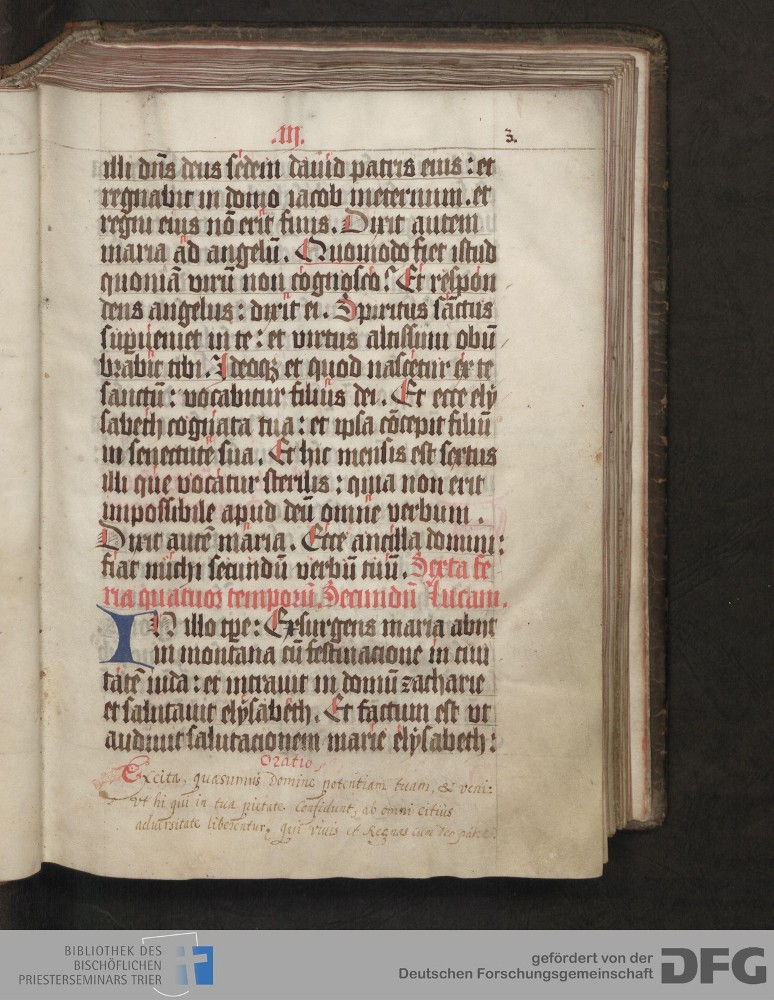 .III. 3.
illi dn̄s deus sedem dauid patris eius : et
regnabit in domo iacob ineternum . et
regni eius nō erit finis . Dixit autem
maria ad angelū . Quomodo fiet istud
quoniā virū non cognosco? Et respon
dens angelus : dixit ei . Spiritus sanctus
superueniet in te : et virtus altissimi obū
brabit tibi . Ideoqꝫ et quod nascetur ex te
sanctū : vocabitur filius dei . Et ecce ely
sabeth cognata tua : et ipsa cōcepit filiū
in senectute sua . Et hic mensis est sextus
illi que vocatur sterilis : quia non erit
impossibile apud deū omne verbum .
Dixit autē maria . Ecce ancilla domini :
fiat michi secundū verbū tuū . Sexta fe
ria quatuor temporū . Secundū Lucam .
IN illo tp̄e : Exsurgens maria abiit
in montana cū festinacione in ciui
tatē iuda : et intrauit in domū zacharie
et salutauit elysabeth . Et factum est vt
audiuit salutacionem marie elysabeth :
Oratio
Excita, quæsumus Domine potentiam tuam, & veni:
vt hi qui in tua pietate Confidunt, ab omni citius
aduersitate liberentur, qui viuis et Regnas Cum Deo patre
BIBLIOTHEK DES
BISCHÖFLICHEN
PRIESTERSEMINARS TRIER
gefördert von der
Deutschen Forschungsgemeinschaft DFG